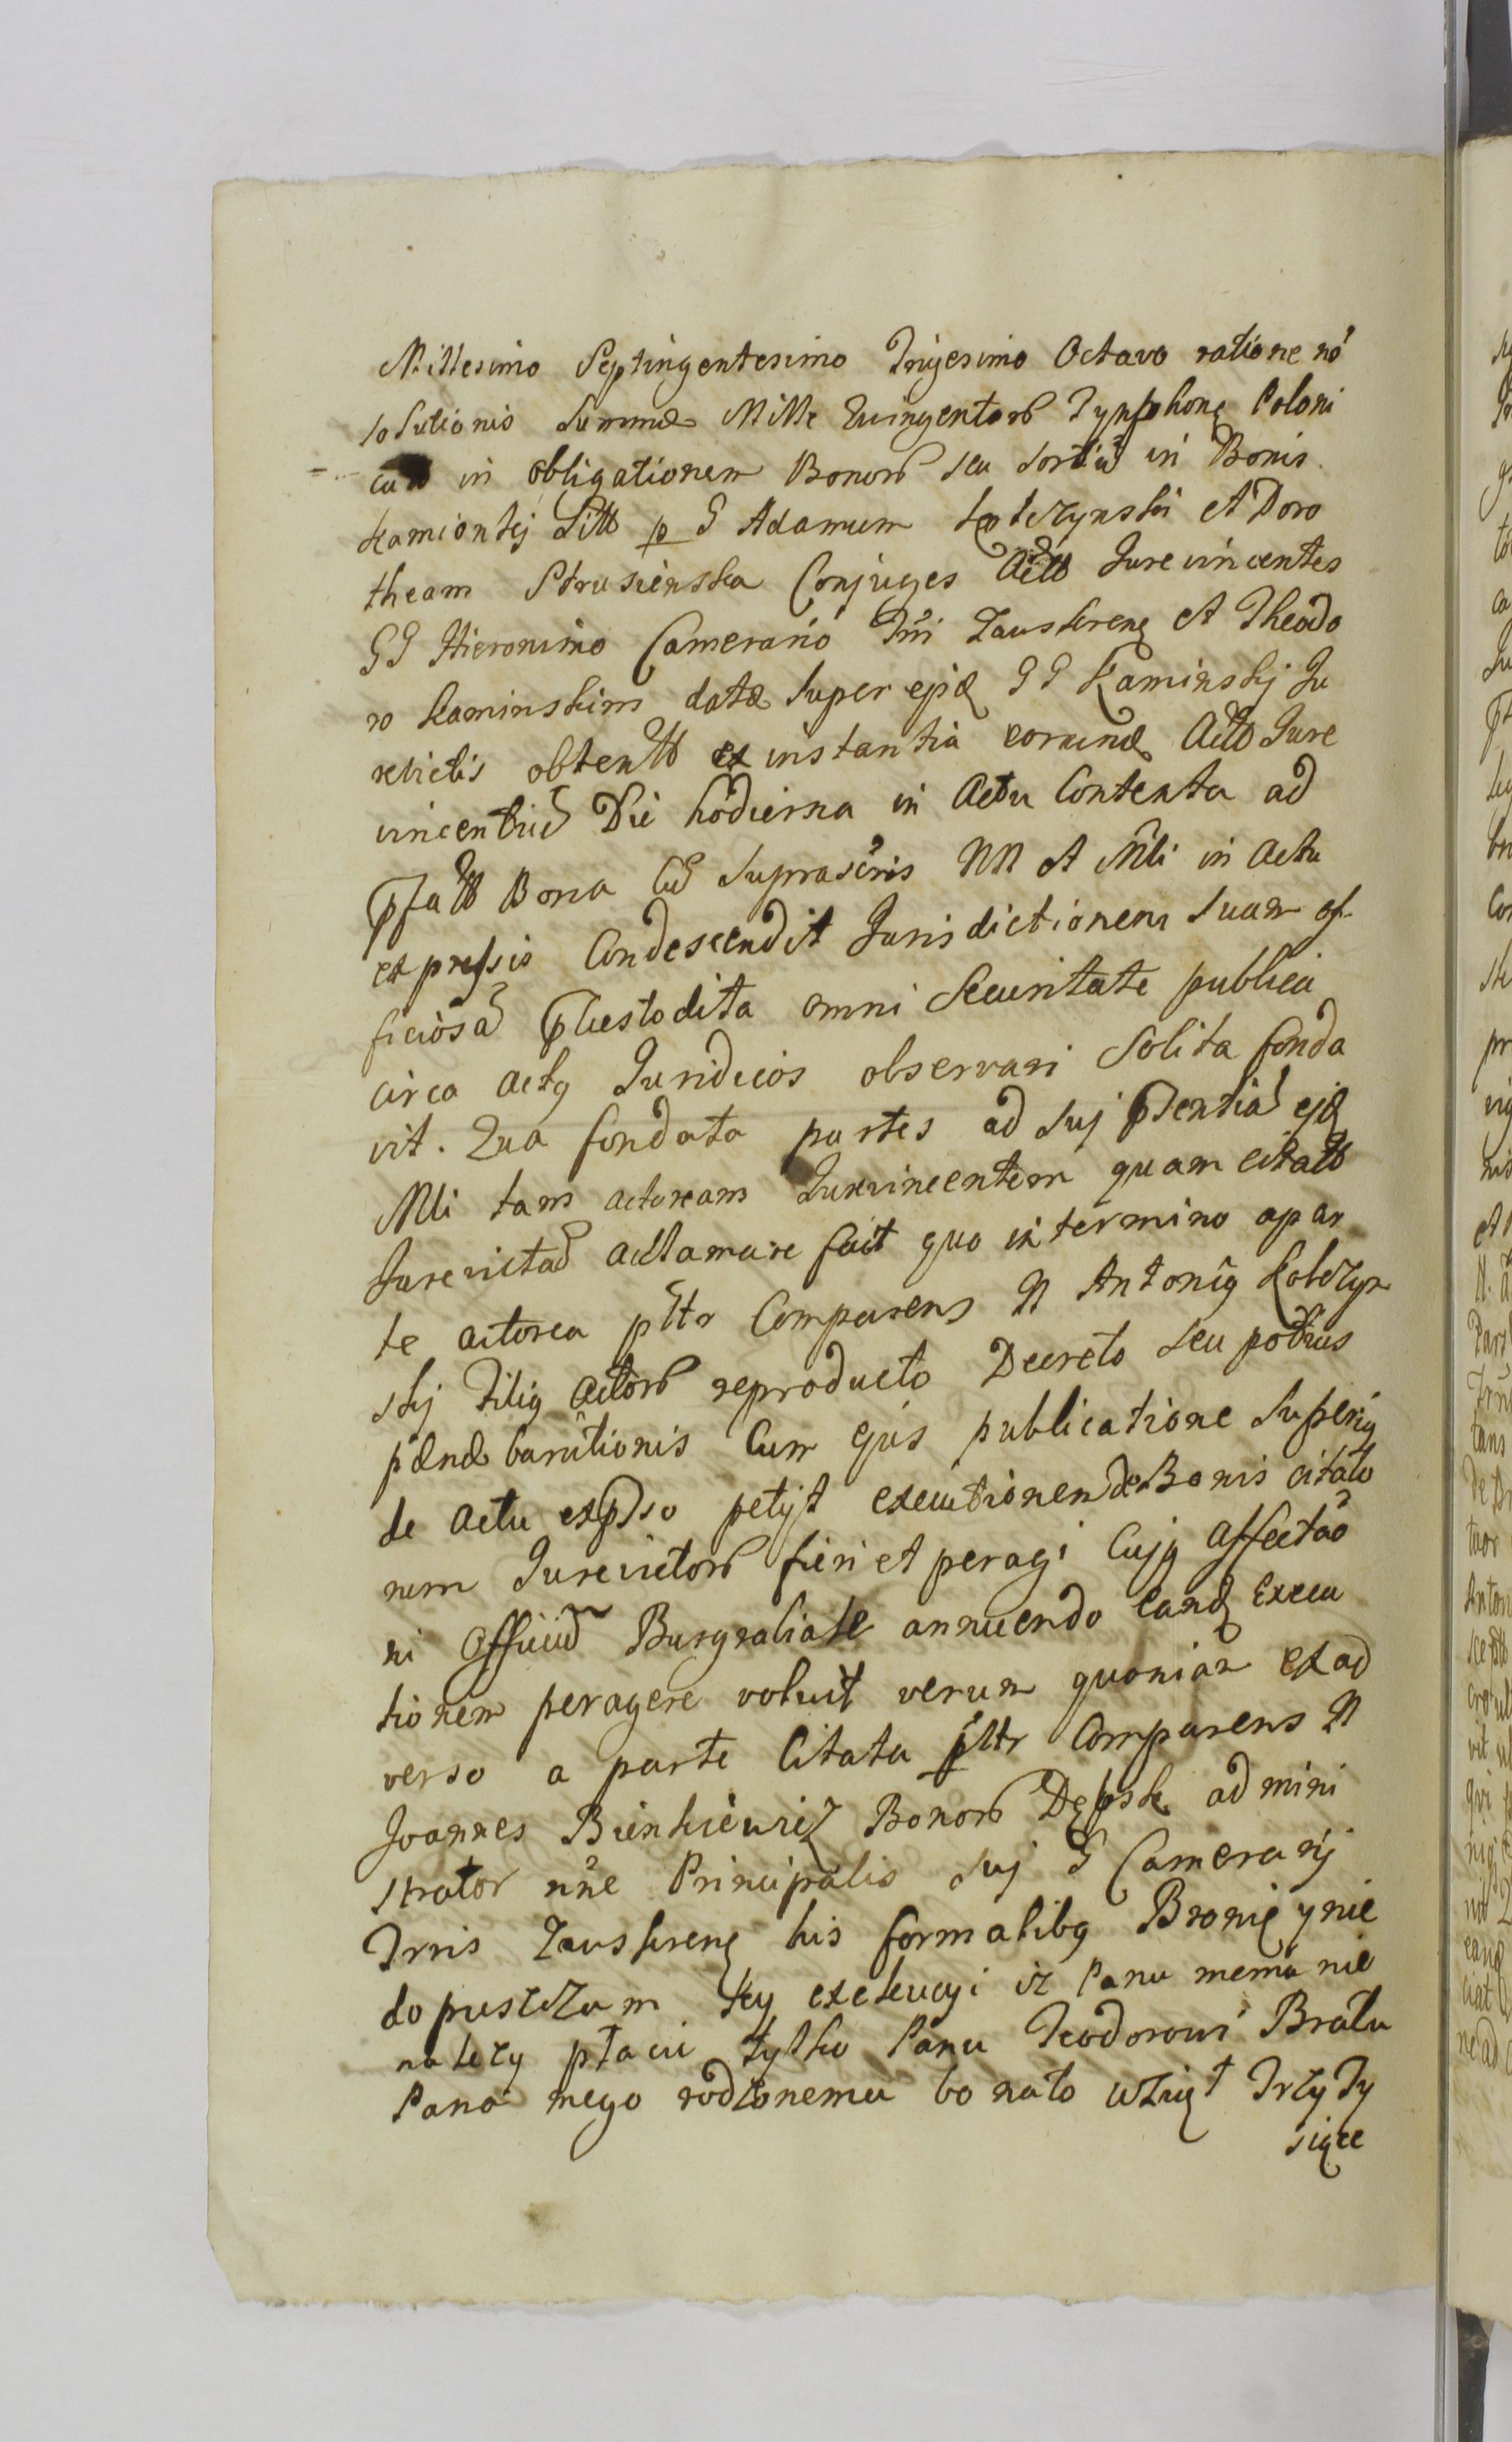 Millesimo Septingentesimo Trigesimo Octavo ratione nó
solutionis Summæ Mille Quingentorũ Tynphonę Poloni
calũ in obligationem Bonorũ seu Sortiũ in Bonis
Kamionkj Sitt p G Adamum Kolczynski et Doro
theam Strusienska Conjuges Actt Jurevincentes
GG Hieronimo Camerario Trri Zauskrenę et Theodo
ro Kaminskim datæ super ejsdę GG Kaminskij Ju
revictis obtentt ex instantia eorundę Actt Jure
vincentiũ Die hodierna in Actu Contenta ad
pfatt Bona Cũ suprascris NN et Mli in actu
expressis Condescendit Jurisdictionem suam of
ficiosã pCustodita omni Securitate publica
circa actq Juridicos observari Solita fonda
vit. Qua fondata partes ad suj pSentiã ejsdę
Mli tam actoream Jurevincentem quam citatt
Jurevictã acclamare fecit quo in termino apar
te actorea psttr Comparens N Antoniq Kolczyn
skj Filiq Actorũ reproducto Decreto seu potius
pænæ banitionis Cum ejus publicatione Superiq
de Actu expsso petijt executionem de Bonis citato
rum Jurevictorũ fieri et peragi Cujq Affectaõ
ni Officiũ Burgrabiale annuendo eandę Execu
tionem peragere voluit verum quoniam ex ad
verso a parte Citata psttr Comparens N
Joannes Bienkiewicz Bonorũ Dębsk admini
strator nñe Principalis suj G Camerarij
Trris Zauskrenę his formalibq Bronię y nie
dopuszczam tey exekucyi iz Panu memu nie
nalezy płacic tylko Panu Teodorowi Bratu
Pana mego rodzonemu bo nato wziął Trzy Ty
siące